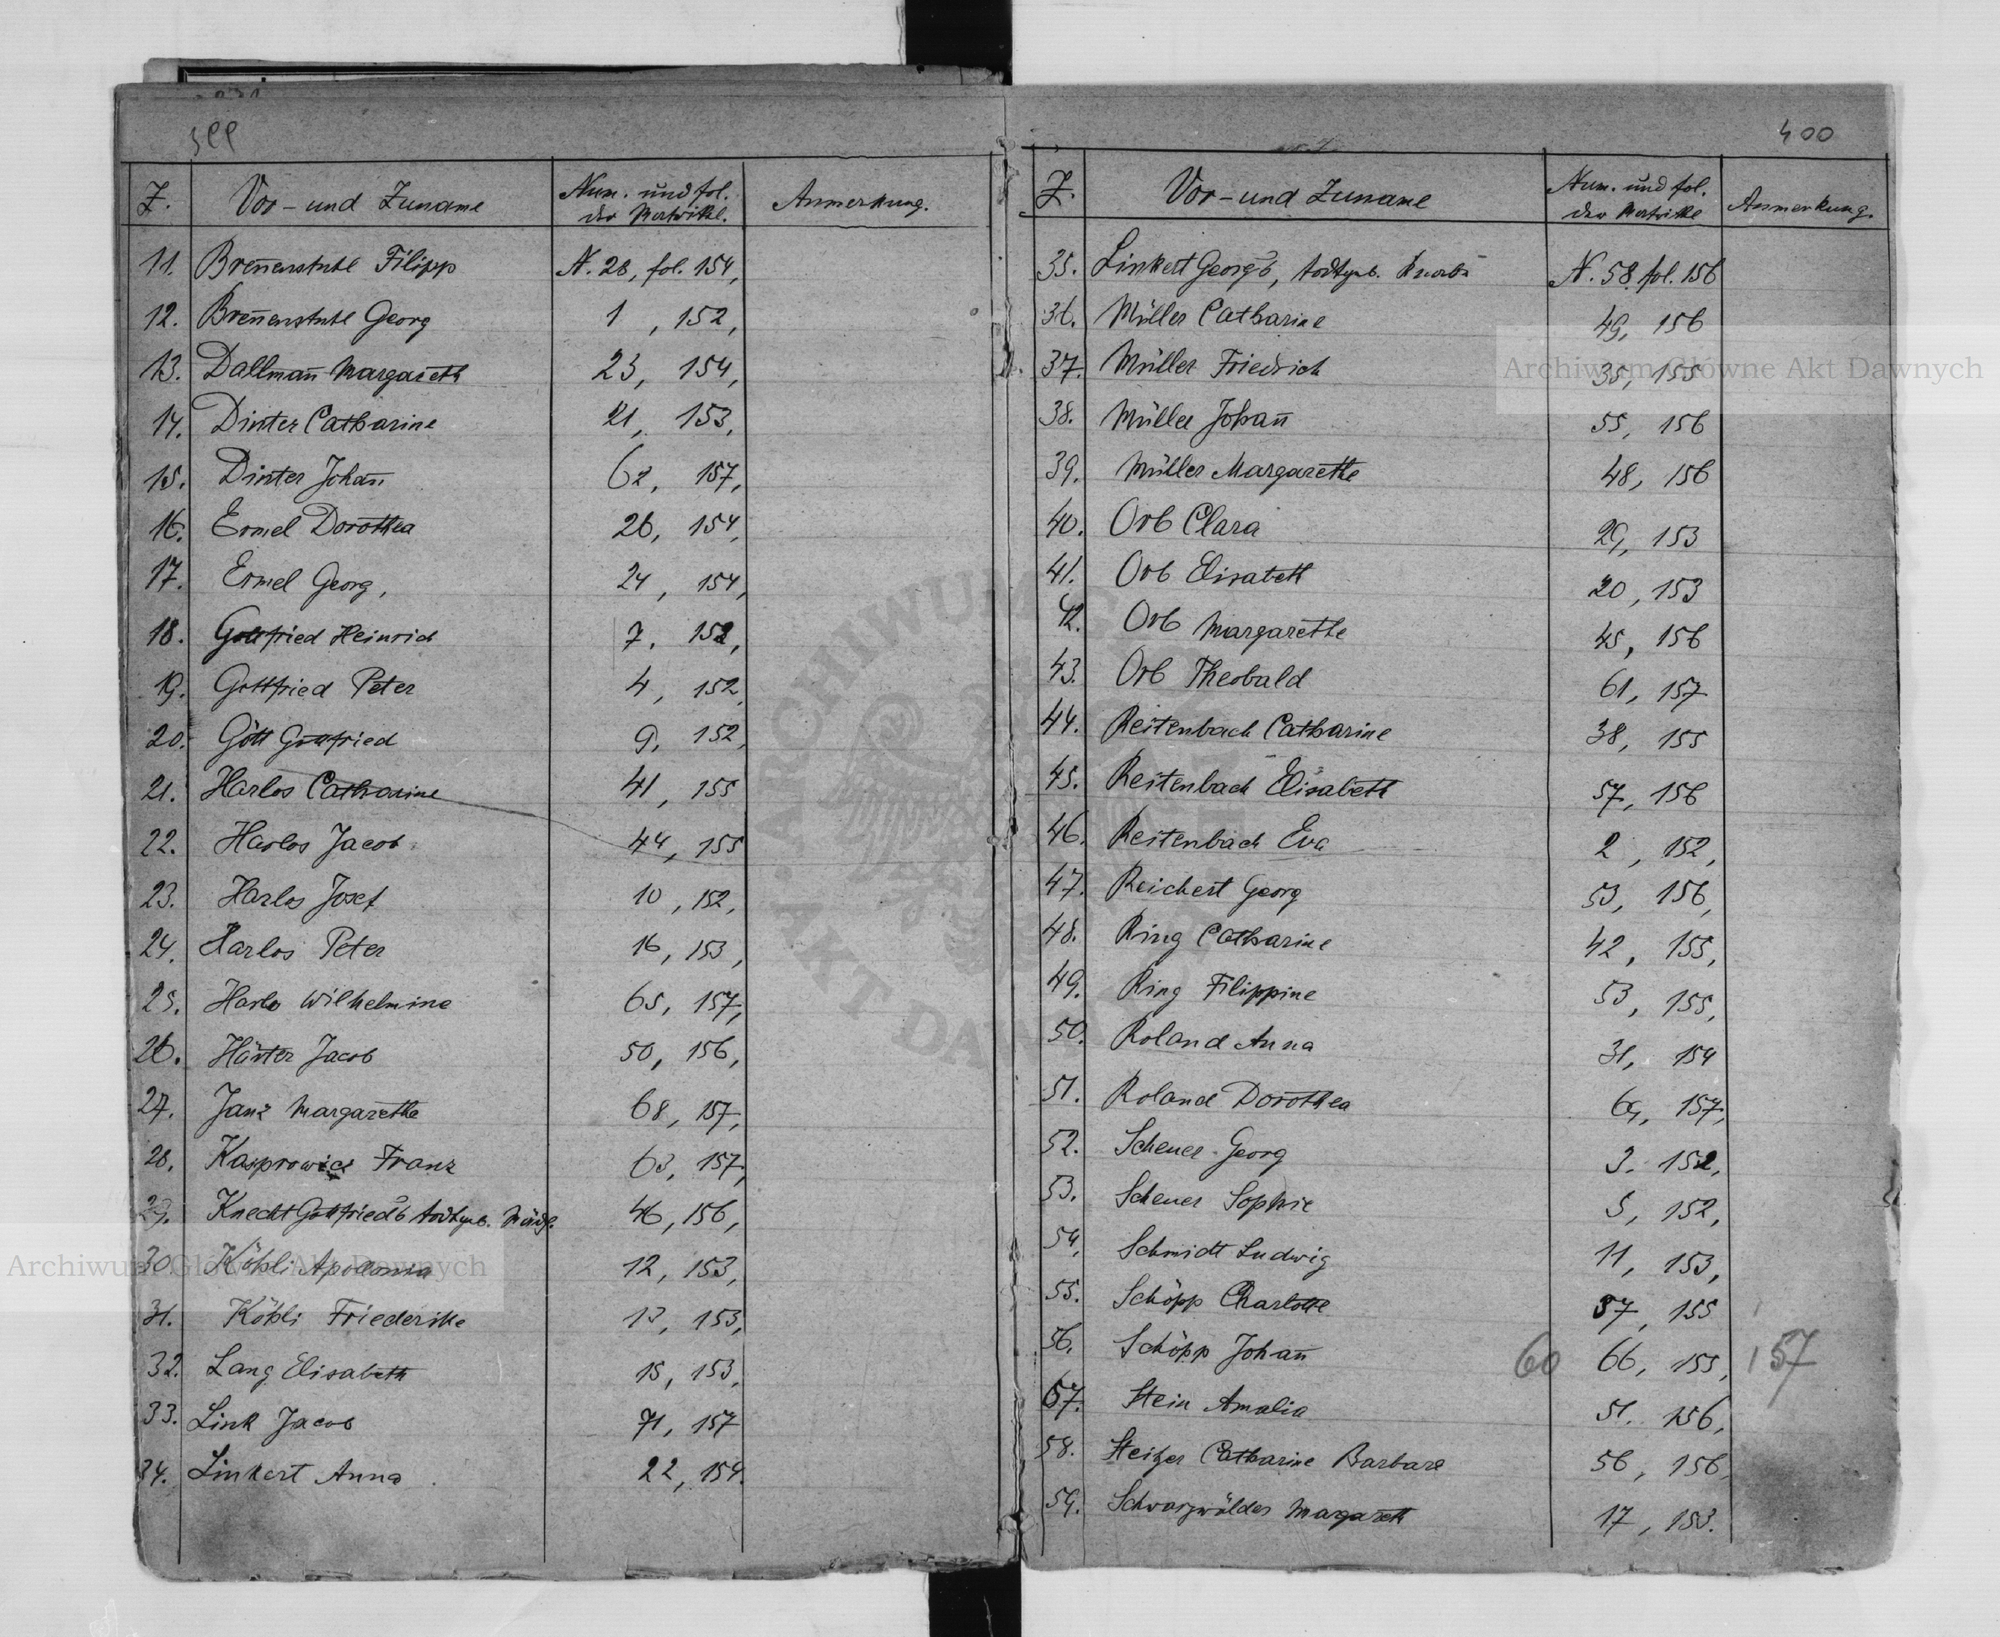 399
Z. Vor- und Zuname Num. und fol. der Matrikel. Anmerkung.
11. Breñenstuhl Filipp N. 28, fol. 154,
12. Breñenstuhl Georg 1, 152,
13. Dallmañ Margareth 23, 154,
14. Dinter Catharine 21, 153,
15. Dinter Johañ 62, 157,
16. Ermel Dorothea 26, 154,
17. Ermel Georg, 24, 154,
18. Gottfried Heinrich 7, 152,
19. Gottfried Peter 4, 152,
20. Gött Gottfried 9, 152,
21. Harlos Catharine 41, 155
22. Harlos Jacob 44, 155
23. Harlos Josef 10, 152,
24. Harlos Peter 16, 153,
25. Harlo Wilhelmine 65, 157,
26. Härter Jacob 50, 156,
27. Janz Margarethe 68, 157,
28. Kasprowicz Franz 63, 157,
29. Knecht Gottfrieds todtgeb. Mädch. 46, 156,
30. Köhli Apolonia 12, 153,
31. Köhli Friederike 13, 153,
32. Lang Elisabeth 15, 153,
33. Link Jacob 71, 157
34. Linkert Anna 22, 154.
400
Z. Vor- und Zuname Num. und fol. der Matrikel Anmerkung.
35. Linkert Georgs, todtgeb. Knabe N. 58, fol. 156
36. Müller Catharine 49, 156
37. Müller Friedrich 35, 155
38. Müller Johañ 55, 156
39. Müller Margarethe 48, 156
40. Orb Clara 29, 153
41. Orb Elisabeth 20, 153
42. Orb Margarethe 45, 156
43. Orb Theobald 61, 157
44. Reitenbach Catharine 38, 155
45. Reitenbach Elisabeth 57, 156
46. Reitenbach Eva 2, 152,
47. Reichert Georg 53, 156,
48. Ring Catharine 42, 155,
49. Ring Filippine 53, 155,
50. Roland Anna 31, 154
51. Roland Dorothea 69, 157,
52. Scheuer Georg 3. 152,
53. Scheuer Sophie 5, 152,
54, Schmidt Ludwig 11, 153,
55. Schöpp Charlotte 37, 155
56. Schöpp Johañ 60 66, 155, 157
57. Stein Amalia 51. 156,
58. Steitzer Catharine Barbara 56, 156,
59. Schwarzwälder Margareth 17, 153.
Archiwum Główne Akt Dawnych
Archiwum Główne Akt Dawnych